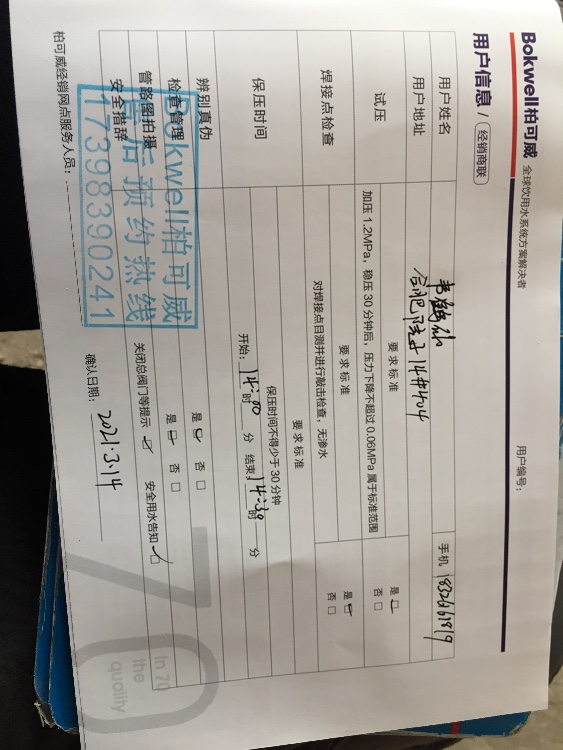 Bokwell柏可威 全球饮用水系统方案解决者
用户编号：
用户信息 / 经销商联
用户姓名
手机
用户地址 14#404
试压
要求标准
加压 1.2MPa，稳压 30 分钟后，压力下降不超过 0.06MPa 属于标准范围
是 否
焊接点检查
要求标准
对焊接点目测并进行敲击检查，无渗水
是 否
保压时间
要求标准
保压时间不得少于 30 分钟
开始：14:00 时 分 结束 14:30 时 分
辨别真伪
是 否
检查管理
是 否
管路图拍摄
安全措辞
关闭总阀门等提示 安全用水告知
柏可威经销网点服务人员：
确认日期：2021.3.14
Bokwell柏可威
售后预约热线
17398390241
in 70
the
quality